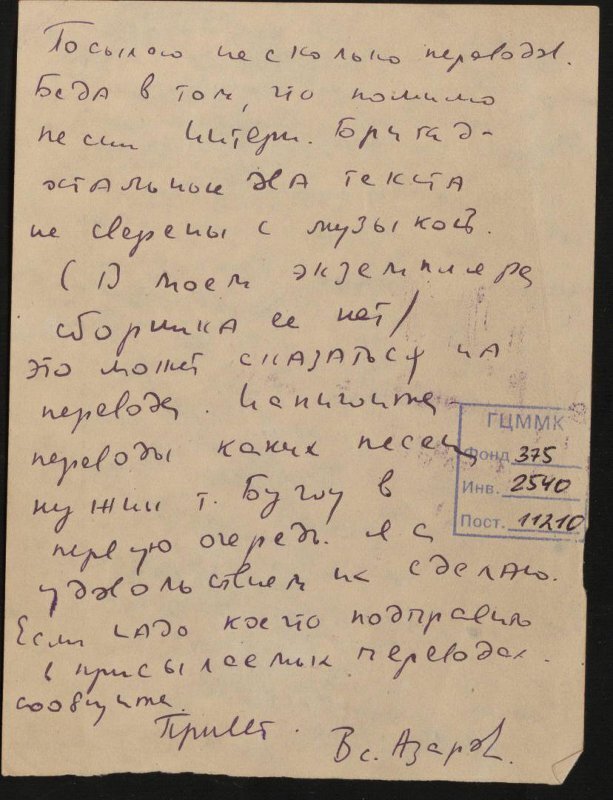 Посылаю несколько переводов.
Беда в том, что помимо
песни Интерн. Бригад -
остальные два текста
не сверены с музыкой.
(В моем экземпляре
сборника ее нет/
это может сказаться на
переводе. Напишите -
переводы каких песен
нужны т. Бушу в
первую очередь. Я с
удовольствием их сделаю.
Если надо кое что подправить
в присылаемых переводах -
сообщите.
Привет.
Вс. Азаров.
ГЦММК
Фонд 375
Инв. 2540
Пост. 11210